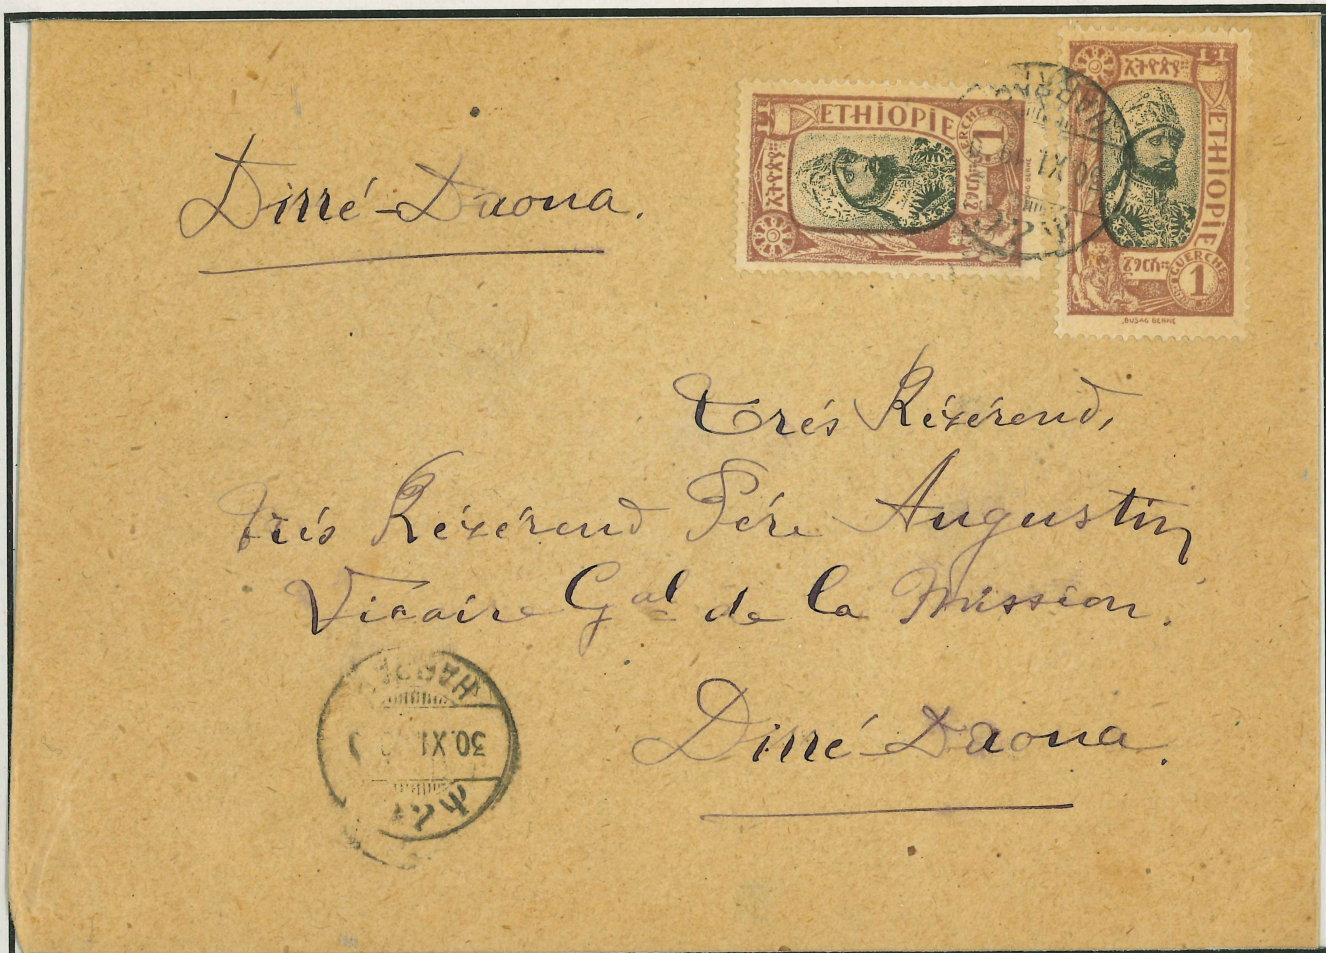 Dirré-Daoua.
ETHIOPIE
ኢትዮጵያ፡
1
GUERCHE
1
ኢትዮጵያ፡
ETHIOPIE
GUERCHE
1
BUSAG BERNE
HARRAR
30.XI
Très Révérend,
Très Révérend Père Augustin
Vicaire Gal de la Mission.
Dirré-Daoua.
HARRAR
30.XI
ሐረር